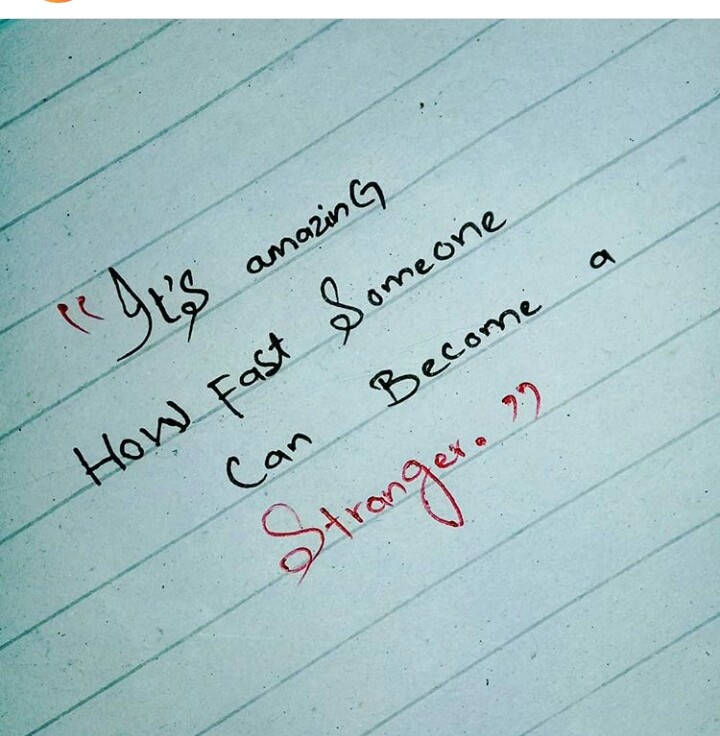 "It's amazinG
How Fast Someone
Can Become a
Stranger."